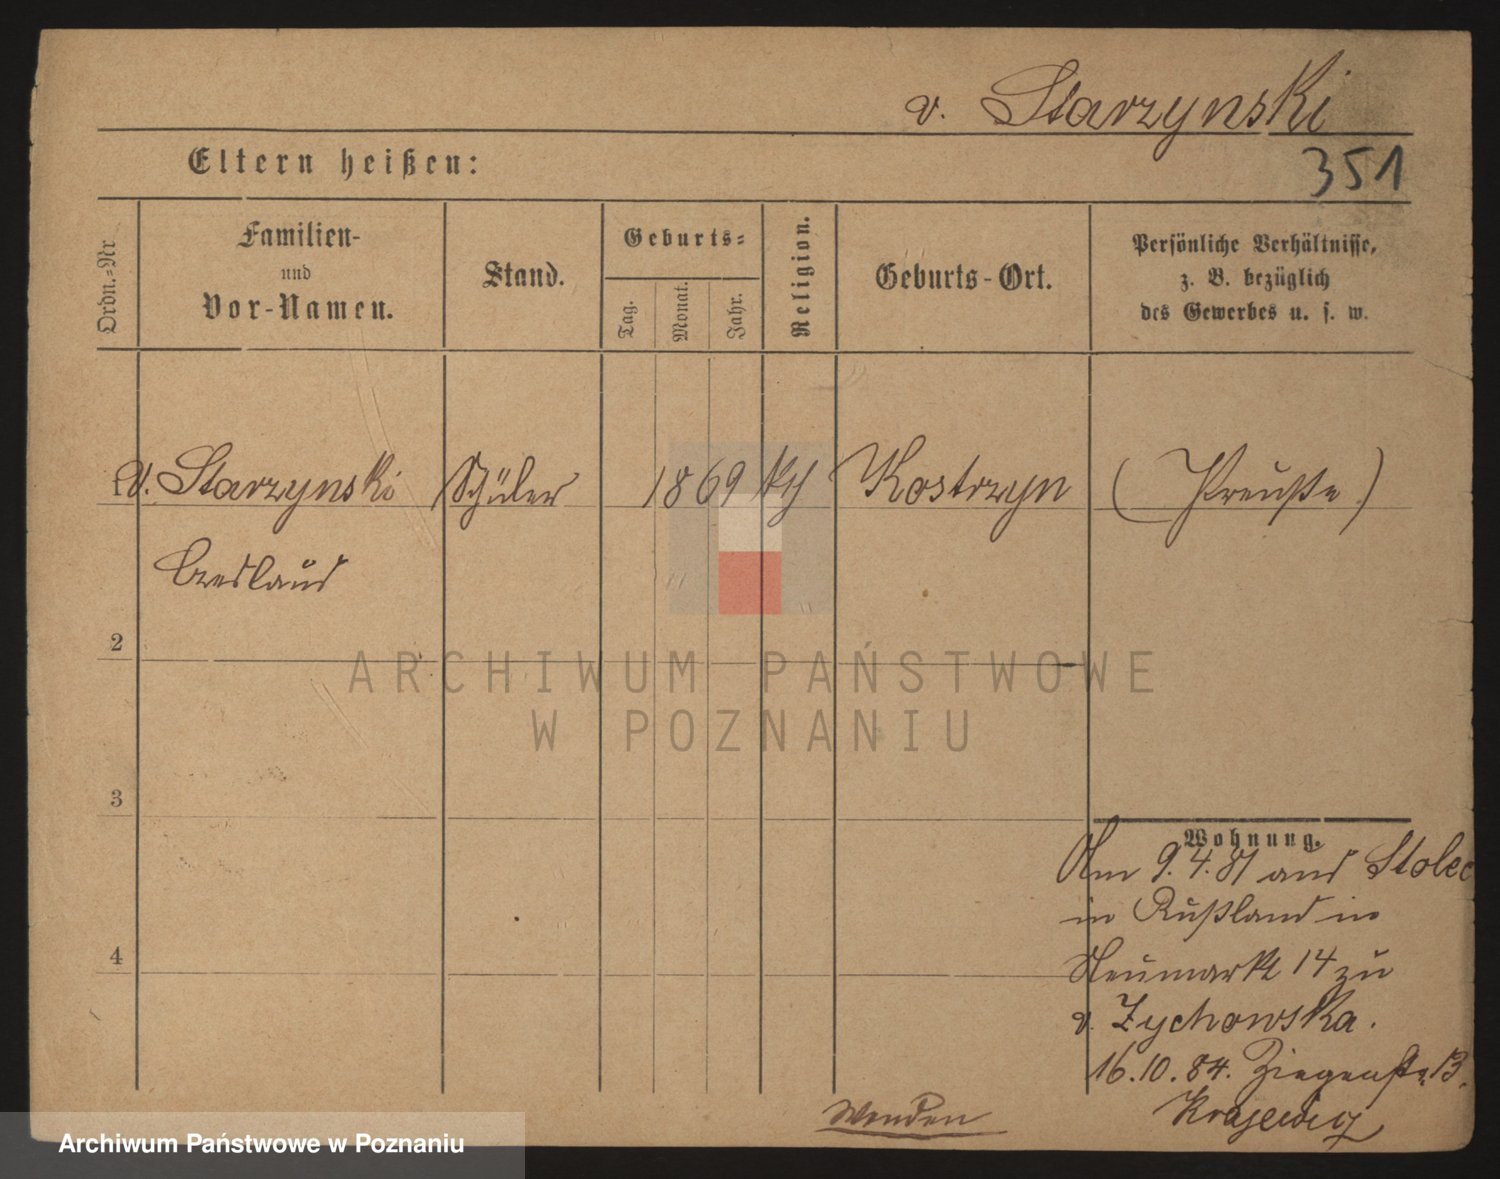 v. Starzynski
Eltern heißen:
351
Ordn.-Nr
Familien-
und
Vor-Namen.
Stand.
Geburts-
Tag.
Monat.
Jahr.
Religion.
Geburts-Ort.
Persönliche Verhältnisse,
z. B. bezüglich
des Gewerbes u. s. w.
v. Starzynski Schüler 1869 kth Kostrzyn (Preuße)
2
3
4
Wohnung.
Am 9.4.81 aus Stolec
in Rußland in
Neumarkt 14 zu
v. Zychowska.
16.10.84. Ziegenstr. 13.
Krajewicz
Wenden
ARCHIWUM PAŃSTWOWE
W POZNANIU
Archiwum Państwowe w Poznaniu